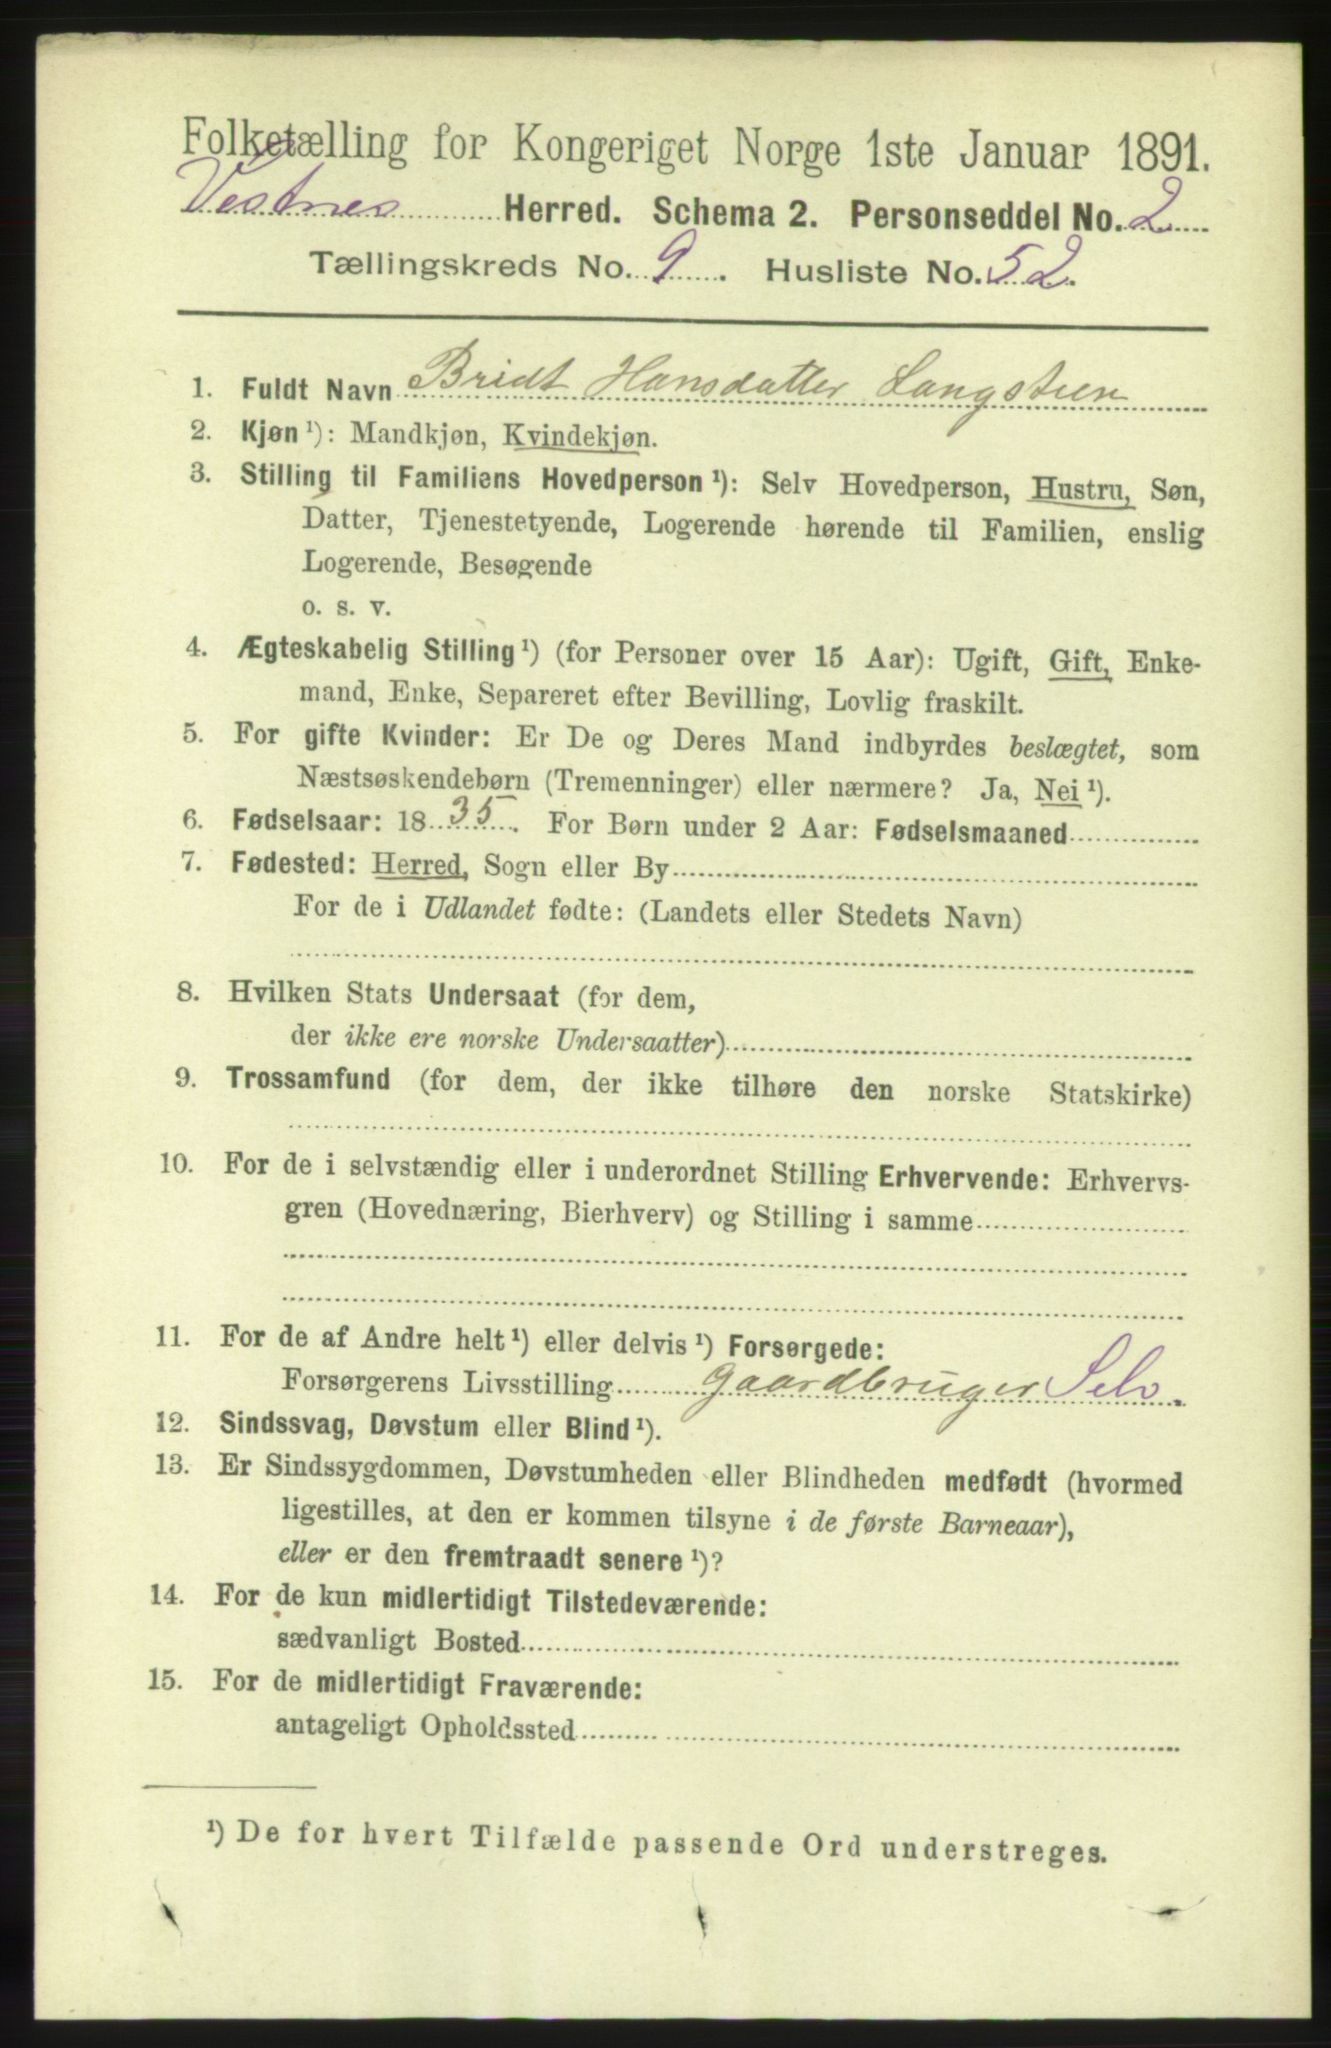 Folketælling for Kongeriget Norge 1ste Januar 1891.
Vestnes Herred. Schema 2. Personseddel No. 2
Tællingskreds No. 9. Husliste No. 52.
1. Fuldt Navn Bridt Hansdatter Langsteen
2. Kjøn ¹): Mandkjøn, Kvindekjøn.
3. Stilling til Familiens Hovedperson ¹): Selv Hovedperson, Hustru, Søn,
Datter, Tjenestetyende, Logerende hørende til Familien, enslig
Logerende, Besøgende
o. s. v.
4. Ægteskabelig Stilling ¹) (for Personer over 15 Aar): Ugift, Gift, Enke-
mand, Enke, Separeret efter Bevilling, Lovlig fraskilt.
5. For gifte Kvinder: Er De og Deres Mand indbyrdes beslægtet, som
Næstsøskendebørn (Tremenninger) eller nærmere? Ja, Nei ¹).
6. Fødselsaar: 1835. For Børn under 2 Aar: Fødselsmaaned
7. Fødested: Herred, Sogn eller By
For de i Udlandet fødte: (Landets eller Stedets Navn)
8. Hvilken Stats Undersaat (for dem,
der ikke ere norske Undersaatter)
9. Trossamfund (for dem, der ikke tilhøre den norske Statskirke)
10. For de i selvstændig eller i underordnet Stilling Erhvervende: Erhvervs-
gren (Hovednæring, Bierhverv) og Stilling i samme
11. For de af Andre helt ¹) eller delvis ¹) Forsørgede:
Forsørgerens Livsstilling Gaardbruger Selv.
12. Sindssvag, Døvstum eller Blind ¹).
13. Er Sindssygdommen, Døvstumheden eller Blindheden medfødt (hvormed
ligestilles, at den er kommen tilsyne i de første Barneaar),
eller er den fremtraadt senere ¹)?
14. For de kun midlertidigt Tilstedeværende:
sædvanligt Bosted
15. For de midlertidigt Fraværende:
antageligt Opholdssted
¹) De for hvert Tilfælde passende Ord understreges.